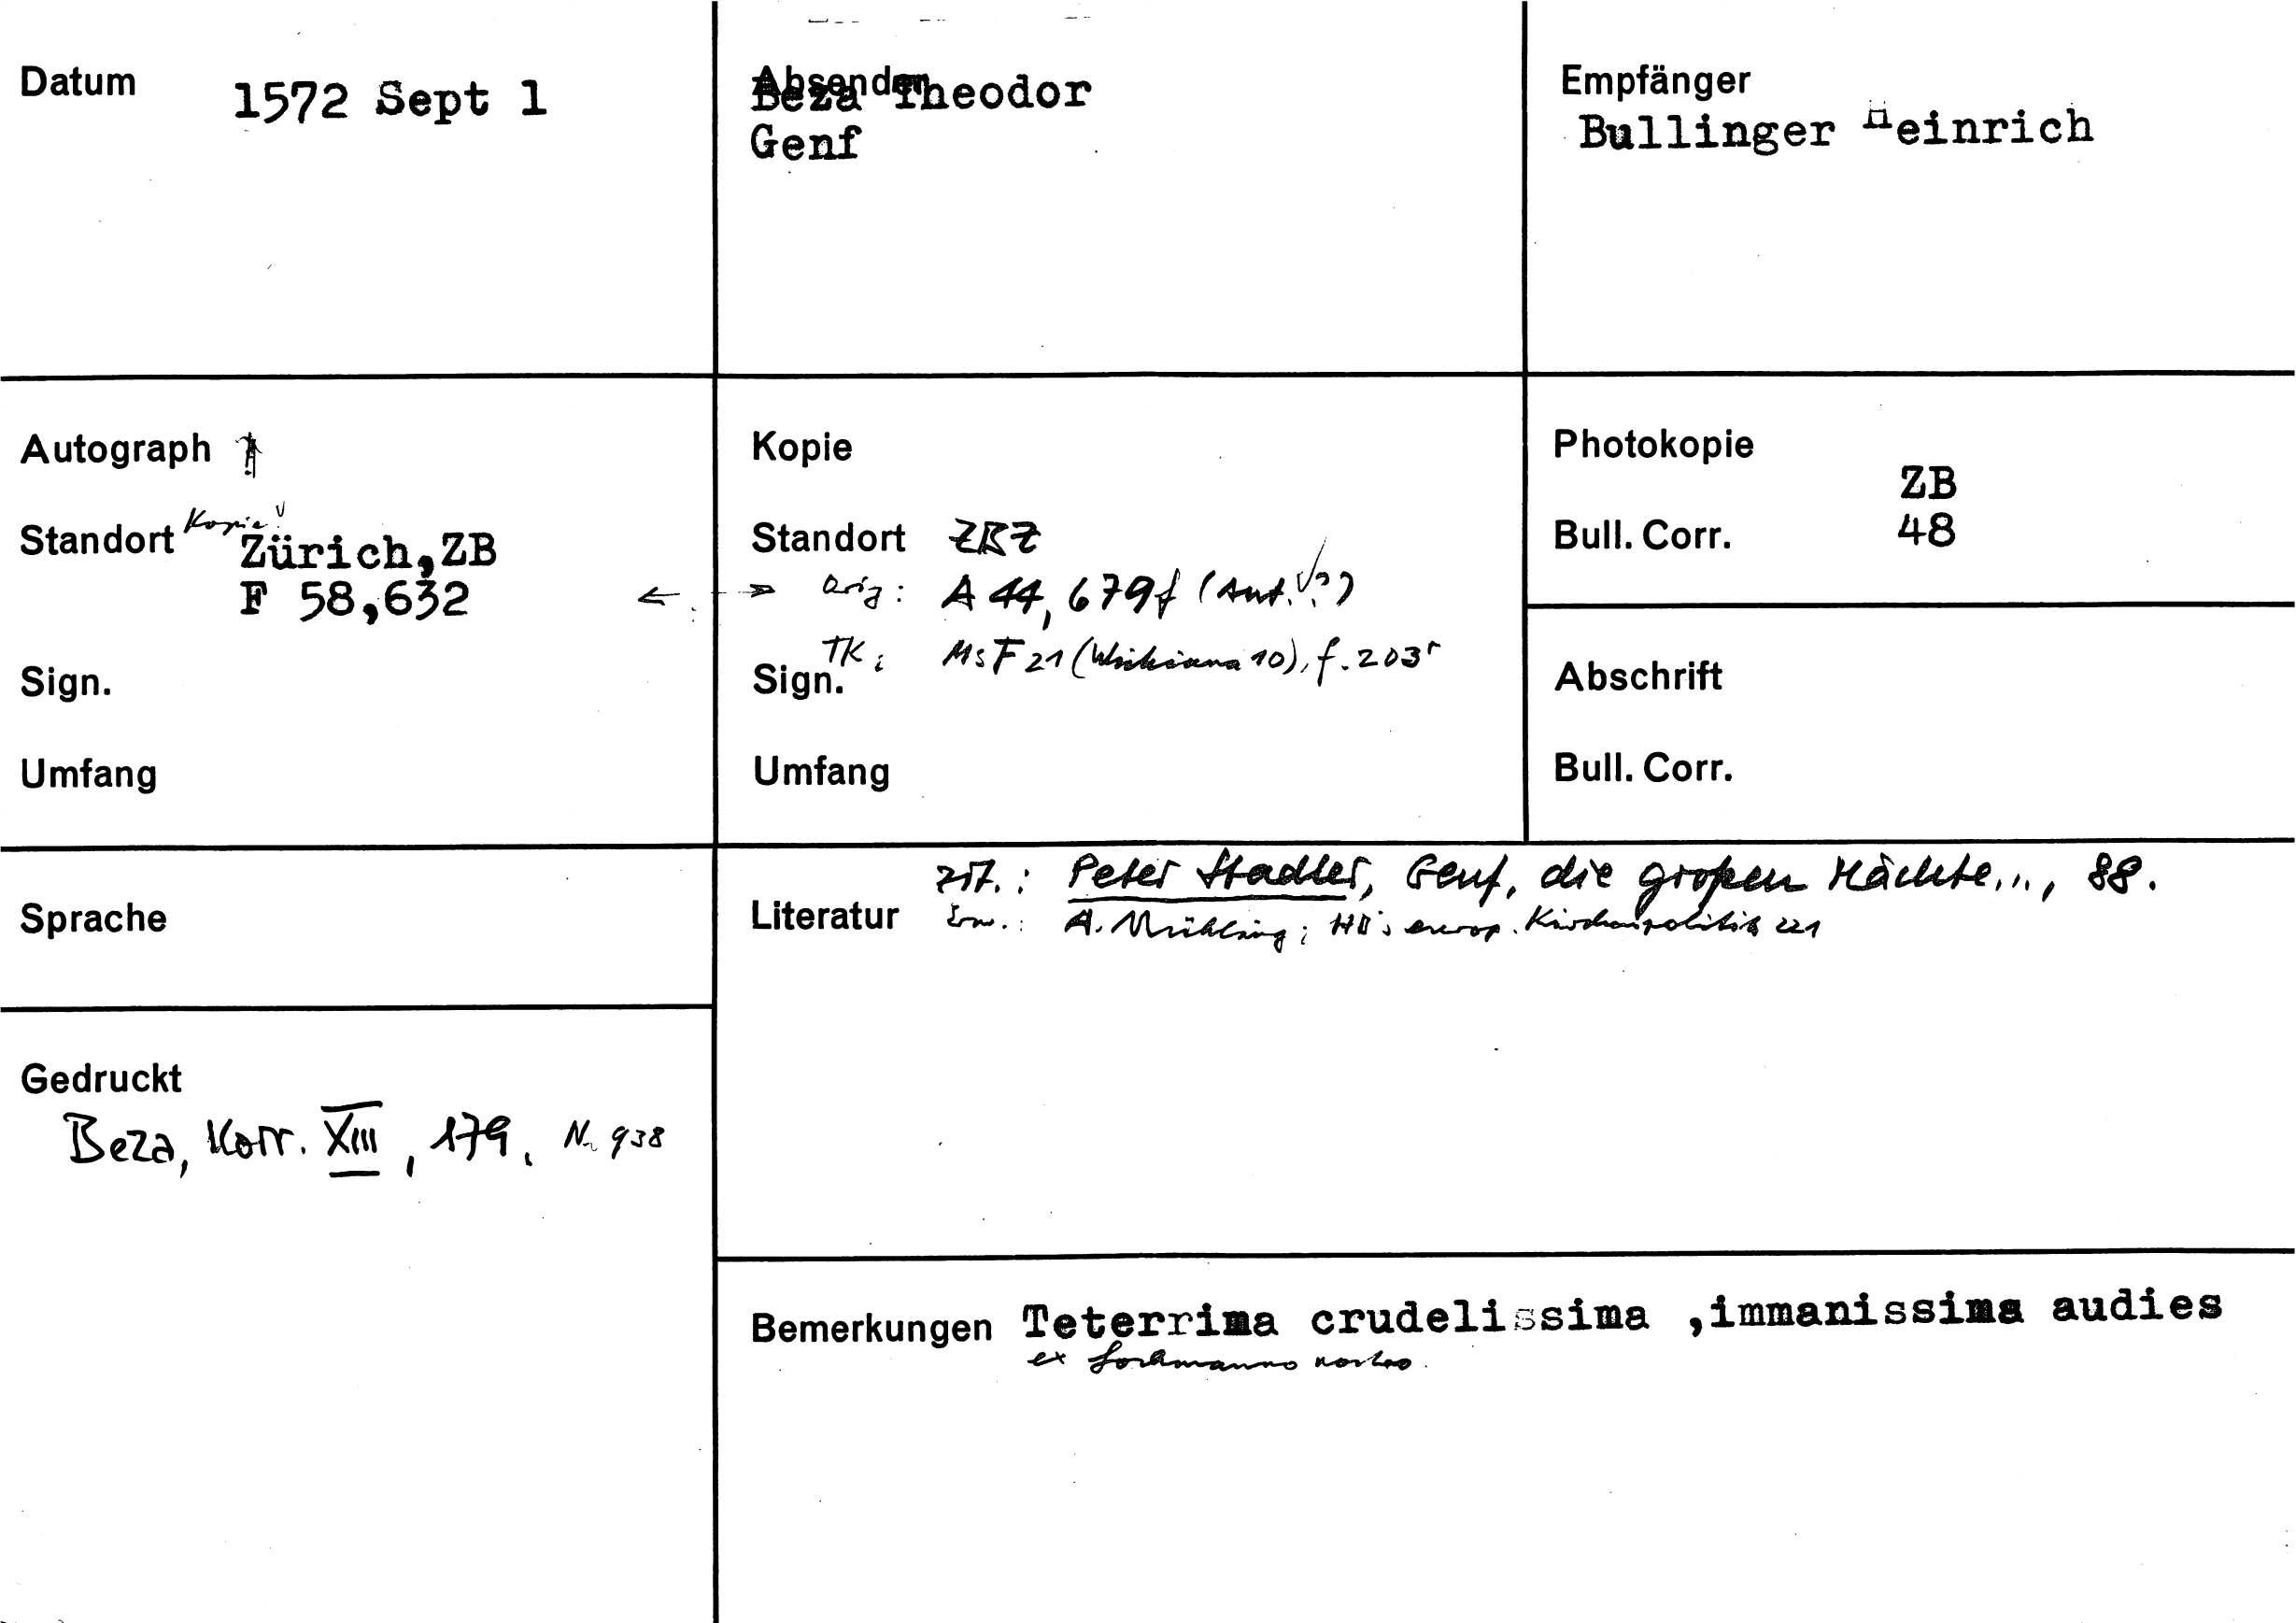 Datum 1572 Sept 1
Absender Beza Theodor
Genf
Empfänger
Bullinger Heinrich
Autograph
Standort Kopie! Zürich,ZB
F 58,632
Sign.
Umfang
Kopie
Standort ZBZ
← → Orig: A 44, 679f (Aut.?)
TK: Ms F 21 (Wickiana 10), f. 203r
Sign.
Umfang
Photokopie
ZB
Bull. Corr. 48
Abschrift
Bull. Corr.
Sprache
zit.: Peter Stadler, Genf, die großen Mächte..., 88.
Literatur Erw.: A. Mühling, HB's europ. Kirchenpolitik 221
Gedruckt
Beza, Korr. XIII, 179, Nr. 938
Bemerkungen Teterrima crudelissima ,immanissima audies
ex